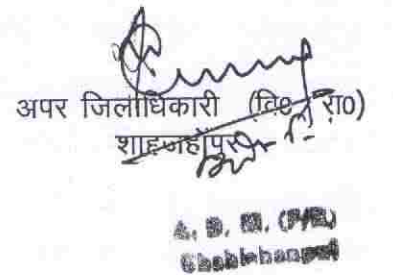 अपर जिलाधिकारी (वि० रा०)
शाहजहाँपुर
A. D. M. (F/R)
Shahjahanpur